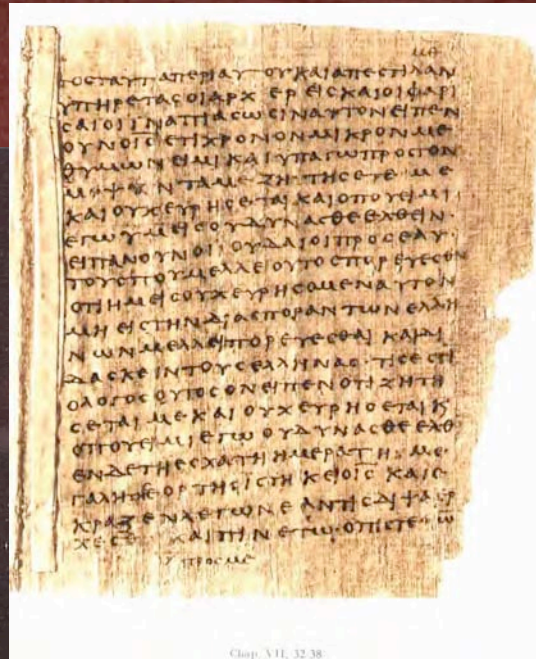 ΜΕ
ΤΟϹΤΑΥΤΑΠΕΡΙΑΥΤΟΥΚΑΙΑΠΕϹΤΙΛΑΝ
ΥΠΗΡΕΤΑϹΟΙΑΡΧ ΕΡΕΙϹΚΑΙΟΙΦΑΡΙ
ϹΑΙΟΙΙΝΑΠΙΑϹΩϹΙΝΑΥΤΟΝΕΙΠΕΝ
ΟΥΝΟΙ̅Ϲ̅ΕΤΙΧΡΟΝΟΝΜΙΚΡΟΝΜΕ
ΘΥΜΩΝΕΙΜΙΚΑΙΥΠΑΓΩΠΡΟϹΤΟΝ
ΝΤΑΜΕ ΖΗΤΗϹΕΤΕ ΜΕ
ΚΑΙΟΥΧΕΥΡΗϹΕΤΑΙΚΑΙΟΠΟΥΕΙΜΙ
ΕΓΩΥΜΕΙϹΟΥΔΥΝΑϹΘΕΕΛΘΕΙΝ·
ΕΙΠΑΝΟΥΝΟΙΙΟΥΔΑΙΟΙΠΡΟϹΕΑΥ
ΤΟΥϹΠΟΥΜΕΛΛΕΙΟΥΤΟϹΠΟΡΕΥΕϹΘΑΙ
ΟΤΙΗΜΕΙϹΟΥΧΕΥΡΗϹΟΜΕΝΑΥΤΟΝ
ΜΗΕΙϹΤΗΝΔΙΑϹΠΟΡΑΝΤΩΝΕΛΛΗ
ΝΩΝΜΕΛΛΕΙΠΟΡΕΥΕϹΘΑΙ ΚΑΙΔΙ
ΔΑϹΚΕΙΝΤΟΥϹΕΛΛΗΝΑϹ·ΤΙϹΕϹΤΙ
ΟΛΟΓΟϹΟΥΤΟϹΟΝΕΙΠΕΝΟΤΙΖΗΤΗ
ϹΕΤΑΙΜΕΚΑΙΟΥΧΕΥΡΗϹΕΤΑΙΚ
ΟΠΟΥΕΙΜΙΕΓΩΟΥΔΥΝΑϹΘΕΕΛΘ
ΕΝΔΕΤΗΕϹΧΑΤΗΗΜΕΡΑΤΗΜΕ
ΓΑΛΗ ΕΟΡΤΗϹΙϹΤΗΚΕΙΟΙ̅Ϲ̅ ΚΑΙΕ
ΚΡΑΖΕΝΛΕΓΩΝΕΑΝΤΙϹΔΙΨΑΕΡ
ΧΕϹΘ ΚΑΙΠΙΝΕΤΩ·ΟΠΙϹΤΕΥΩ
ΠΡΟϹΜΕ
Chap. VII, 32-38